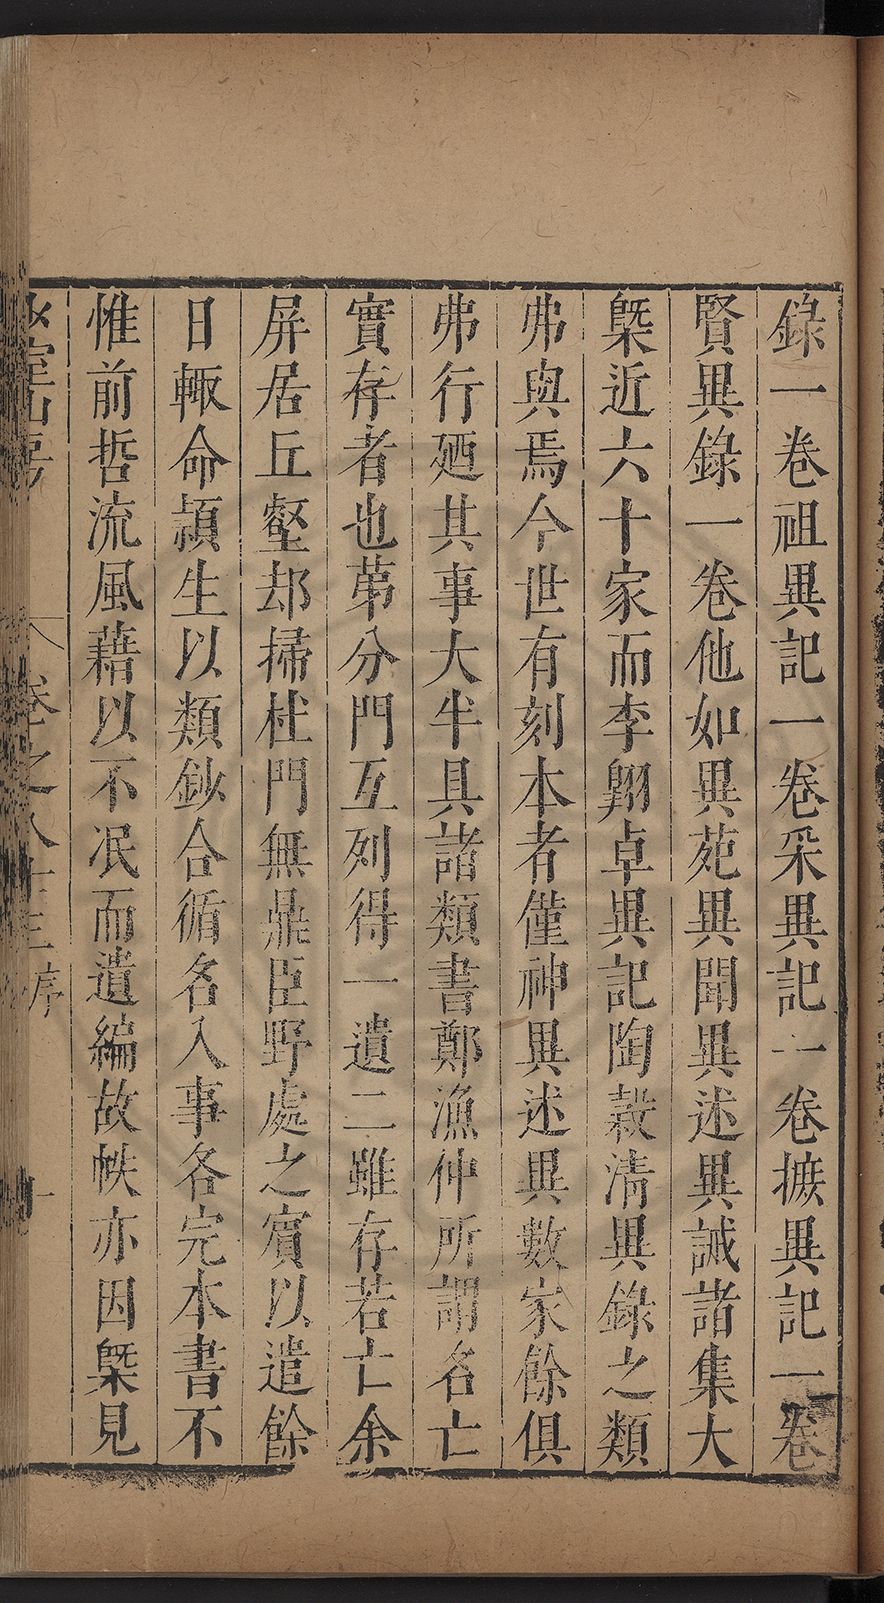 錄一卷祖異記一卷采異記一卷摭異記一卷
賢異錄一卷他如異苑異聞異述異誡諸集大
槩近六十家而李翺卓異記陶穀清異錄之類
弗與焉今世有刻本者僅神異述異數家餘俱
弗行廼其事大半具諸類書鄭漁仲所謂名亡
實存者也第分門互列得一遺二雖存若亡余
屏居丘壑却掃杜門無鼎臣野處之賓以遣餘
日輙命頴生以類鈔合循名入事各完本書不
惟前哲流風藉以不泯而遺編故帙亦因槩見
室山房 卷之八十三序 十